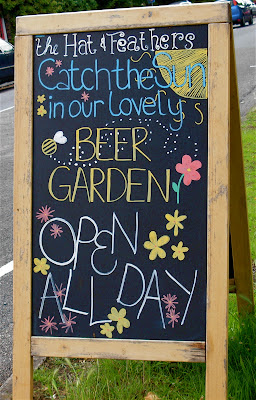 the Hat & Feathers
Catch the Sun
in our lovely
BEER
GARDEN
OPEN
ALL DAY